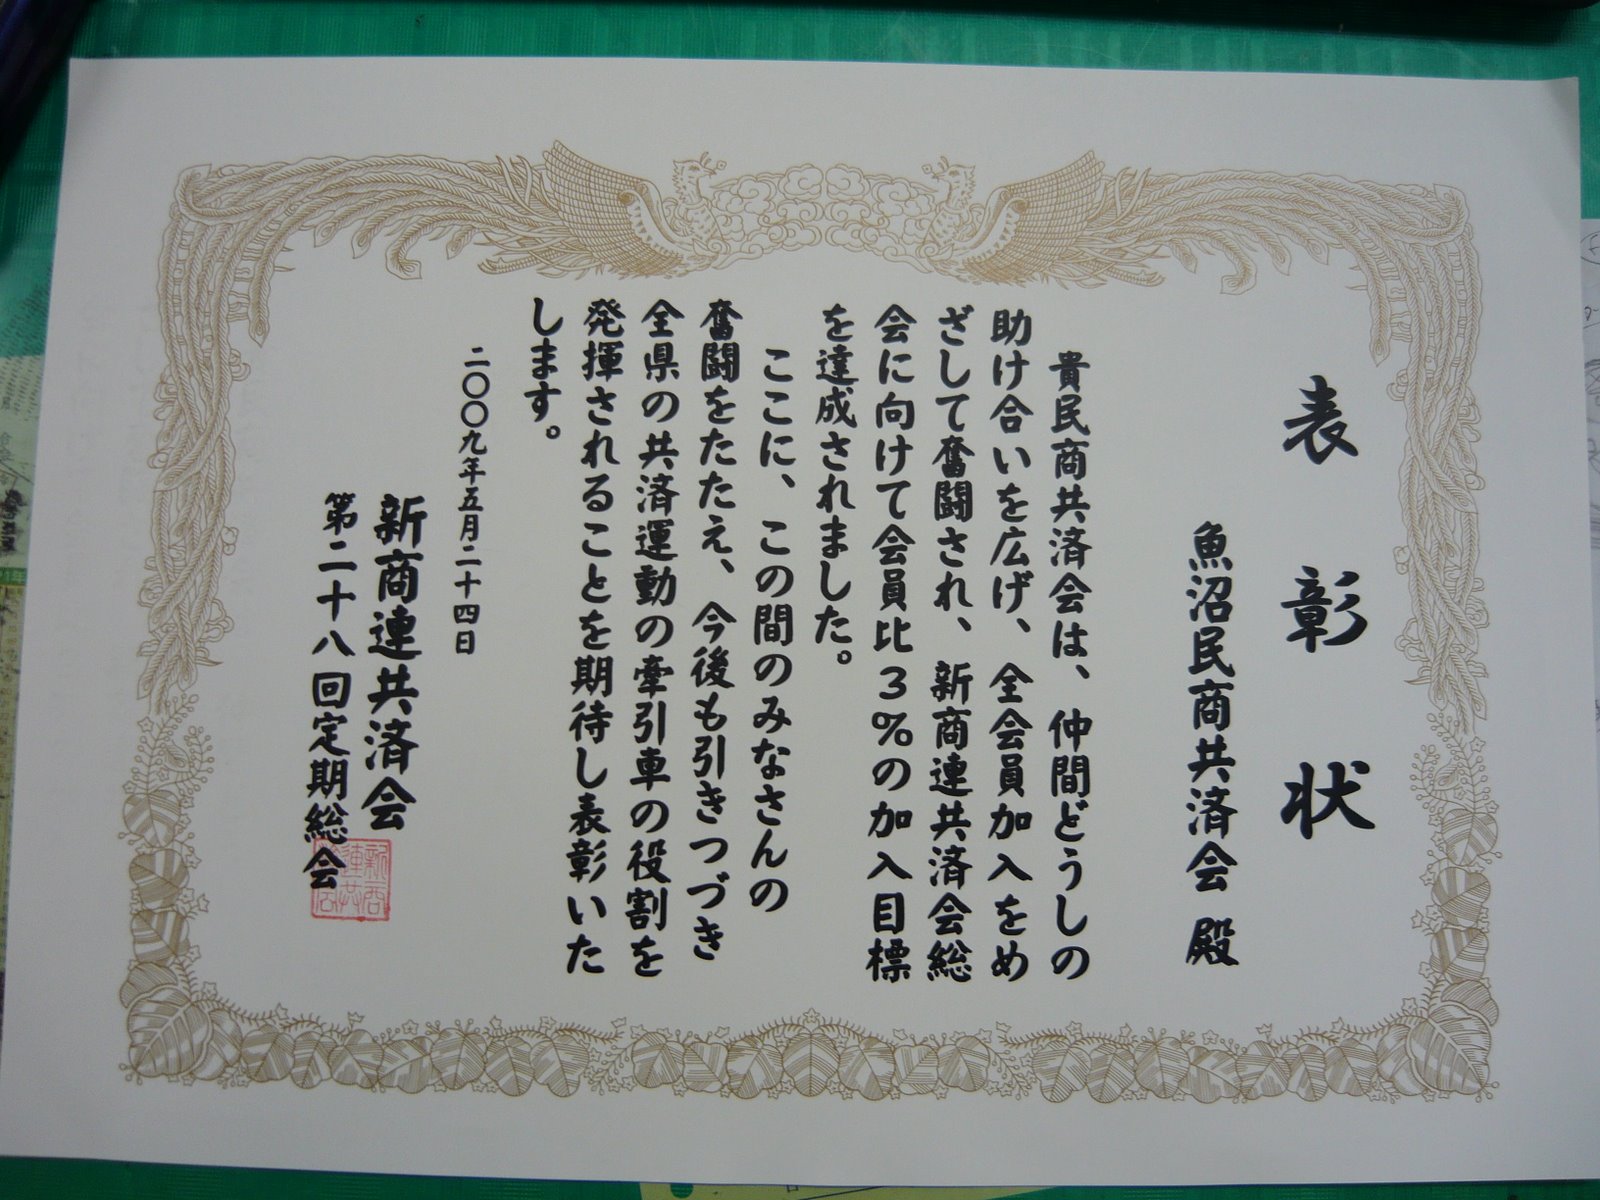 表彰状
魚沼民商共済会 殿
貴民商共済会は、仲間どうしの
助け合いを広げ、全会員加入をめ
ざして奮闘され、新商連共済会総
会に向けて会員比3%の加入目標
を達成されました。
ここに、この間のみなさんの
奮闘をたたえ、今後も引きつづき
全県の共済運動の牽引車の役割を
発揮されることを期待し表彰いた
します。
二〇〇九年五月二十四日
新商連共済会
第二十八回定期総会